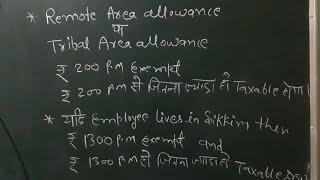 * Remote Area allowance
या
Tribal Area allowance
₹ 200 P.M exempt
₹ 200 P.M से जितना ज्यादा हो Taxable होगा।
* यदि employee lives in Sikkim then
₹ 1300 P.M exempt and
₹ 1300 P.M से जितना ज्यादा हो Taxable होगा